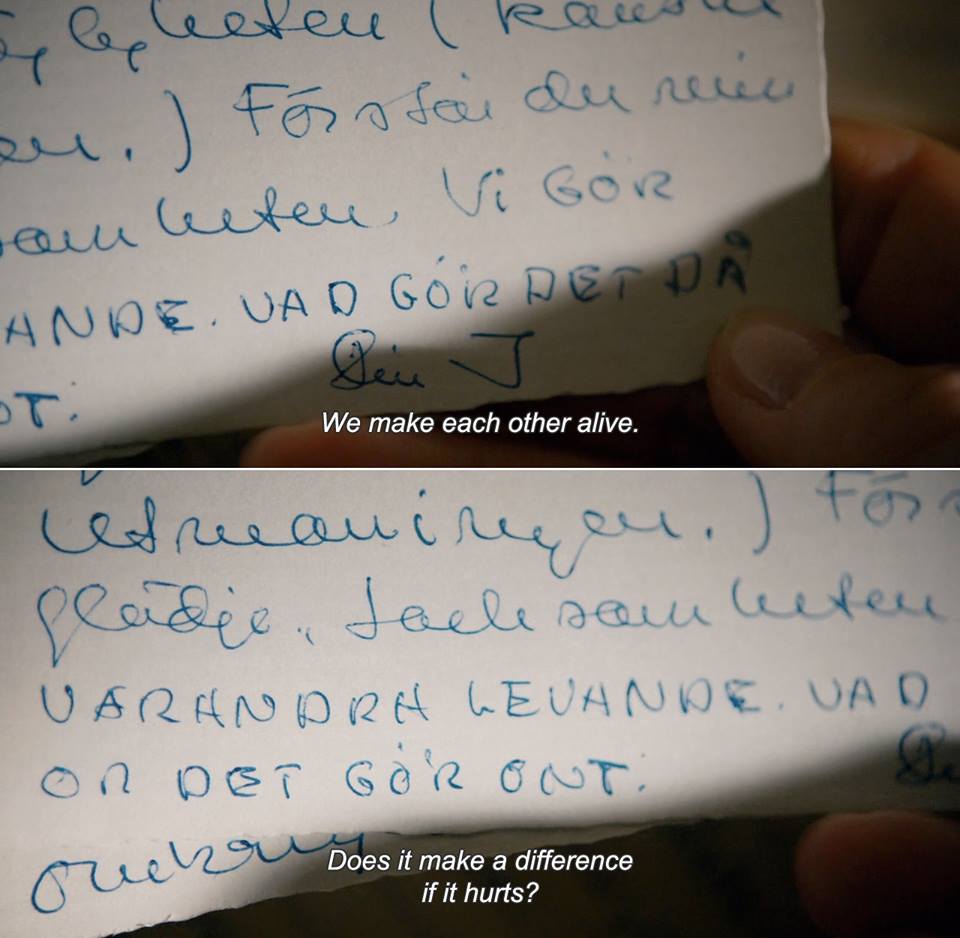 heten ( kanske
en.) Förstår du min
samheten. Vi GÖR
ANDE. VAD GÖR DET DÅ
Din J
NT.
We make each other alive.
utmaningen.) Förs
glädje, tacksamheten
VARANDRA LEVANDE. VAD
OM DET GÖR ONT.
Does it make a difference
if it hurts?